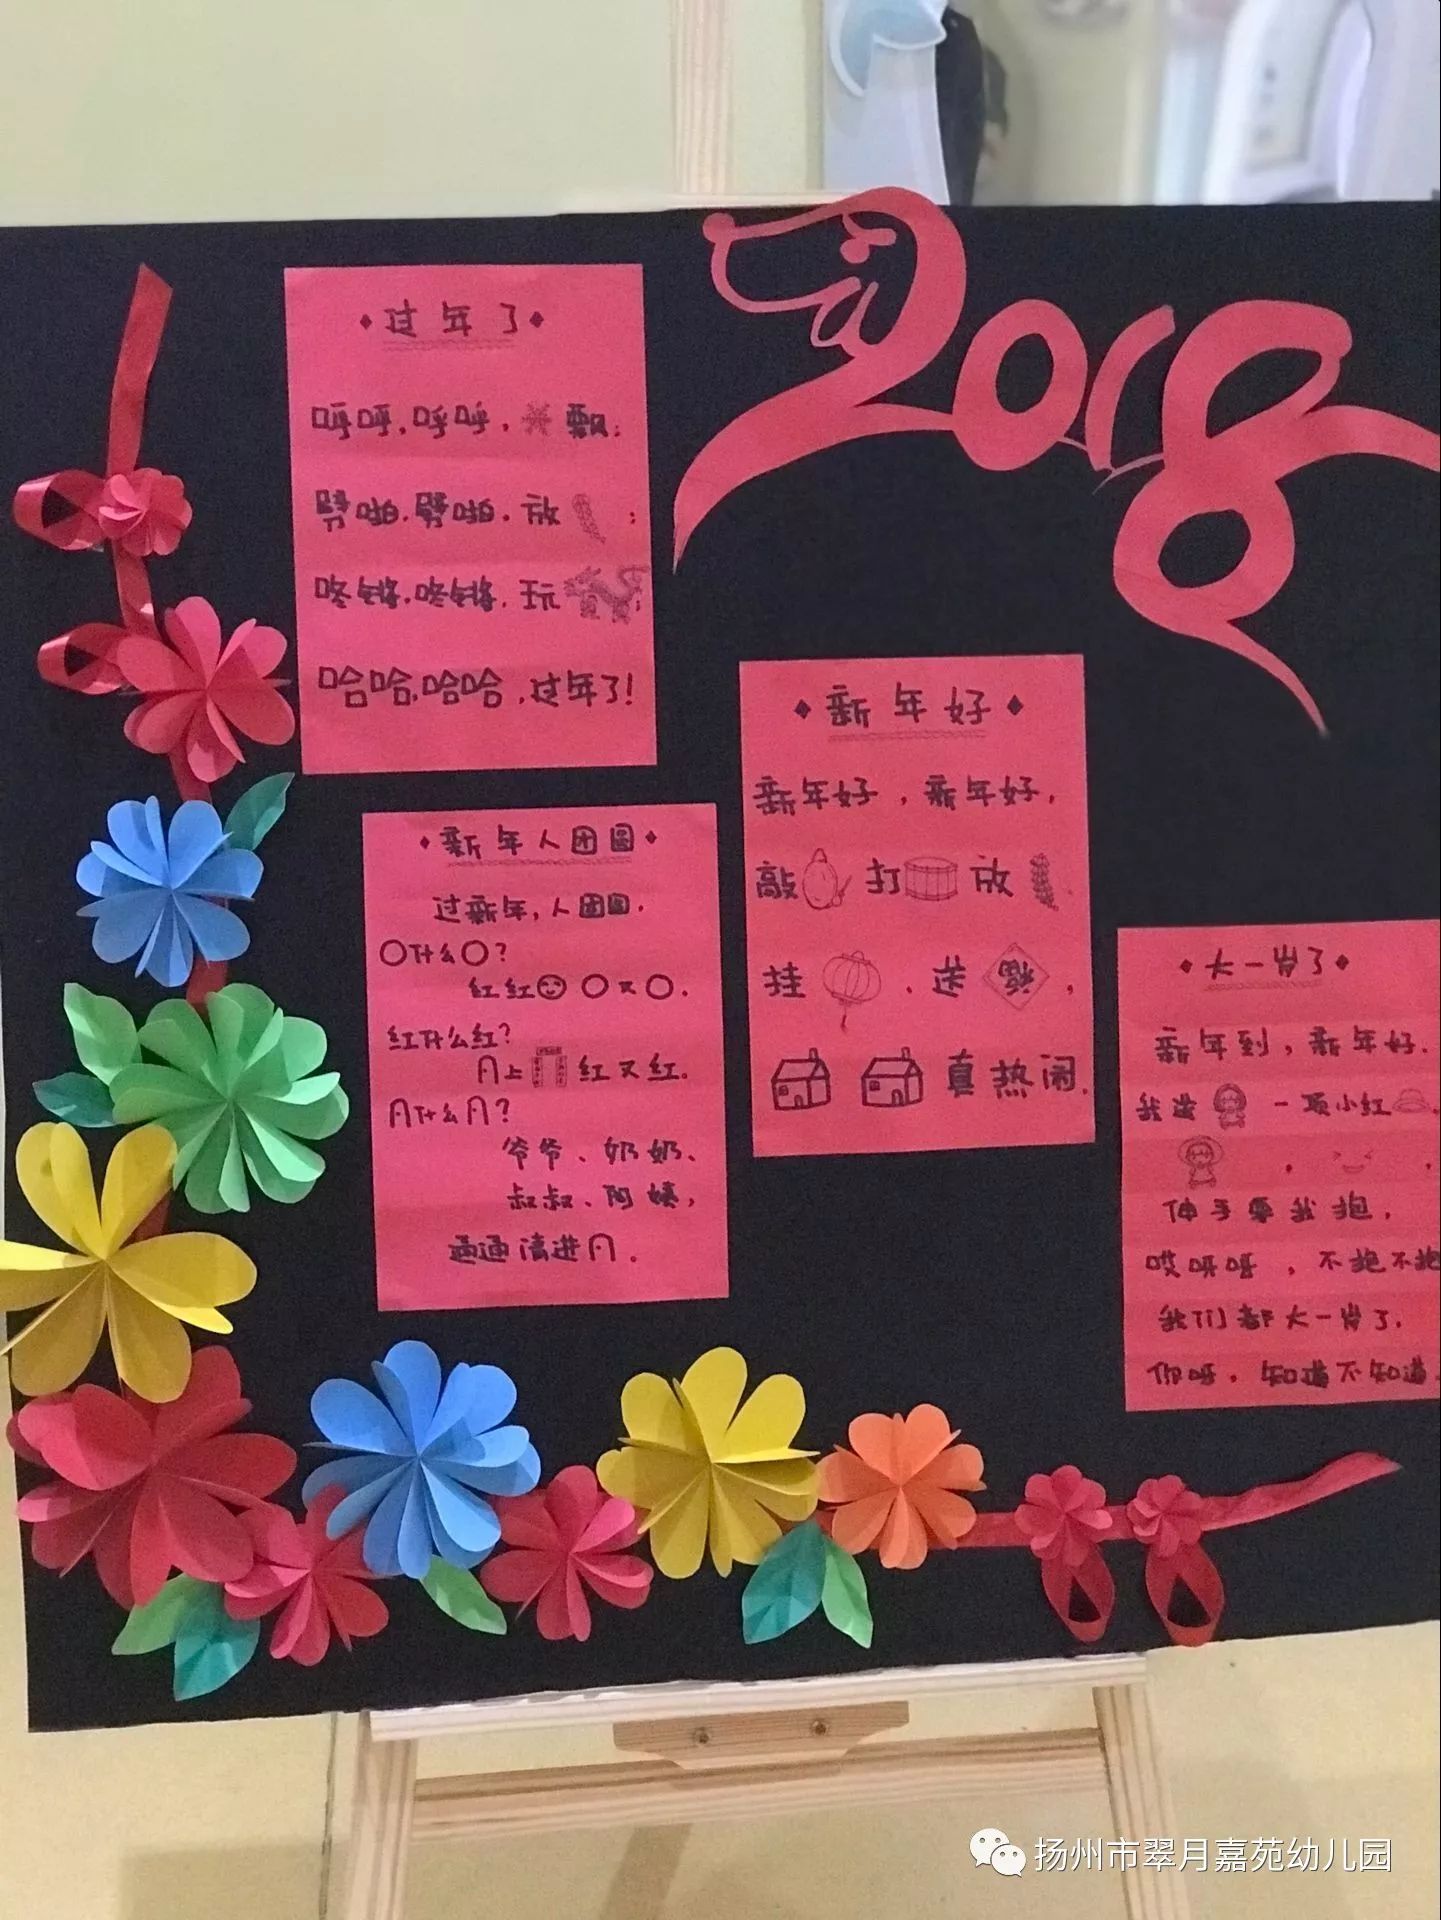 2018
过年了
呼呼,呼呼,飘;
劈啪,劈啪,放;
咚锵,咚锵,玩;
哈哈,哈哈,过年了!
新年人团圆
过新年,人团圆.
○什么○?
红红○又○.
红什么红?
门上红又红.
门什么门?
爷爷、奶奶、
叔叔、阿姨,
通通请进门.
新年好
新年好,新年好,
敲打放
挂、送福,
真热闹.
大一岁了
新年到,新年好.
我送一顶小红,
伸手要我抱,
哎呀呀,不抱不抱
我们都大一岁了.
你呀,知道不知道.
扬州市翠月嘉苑幼儿园